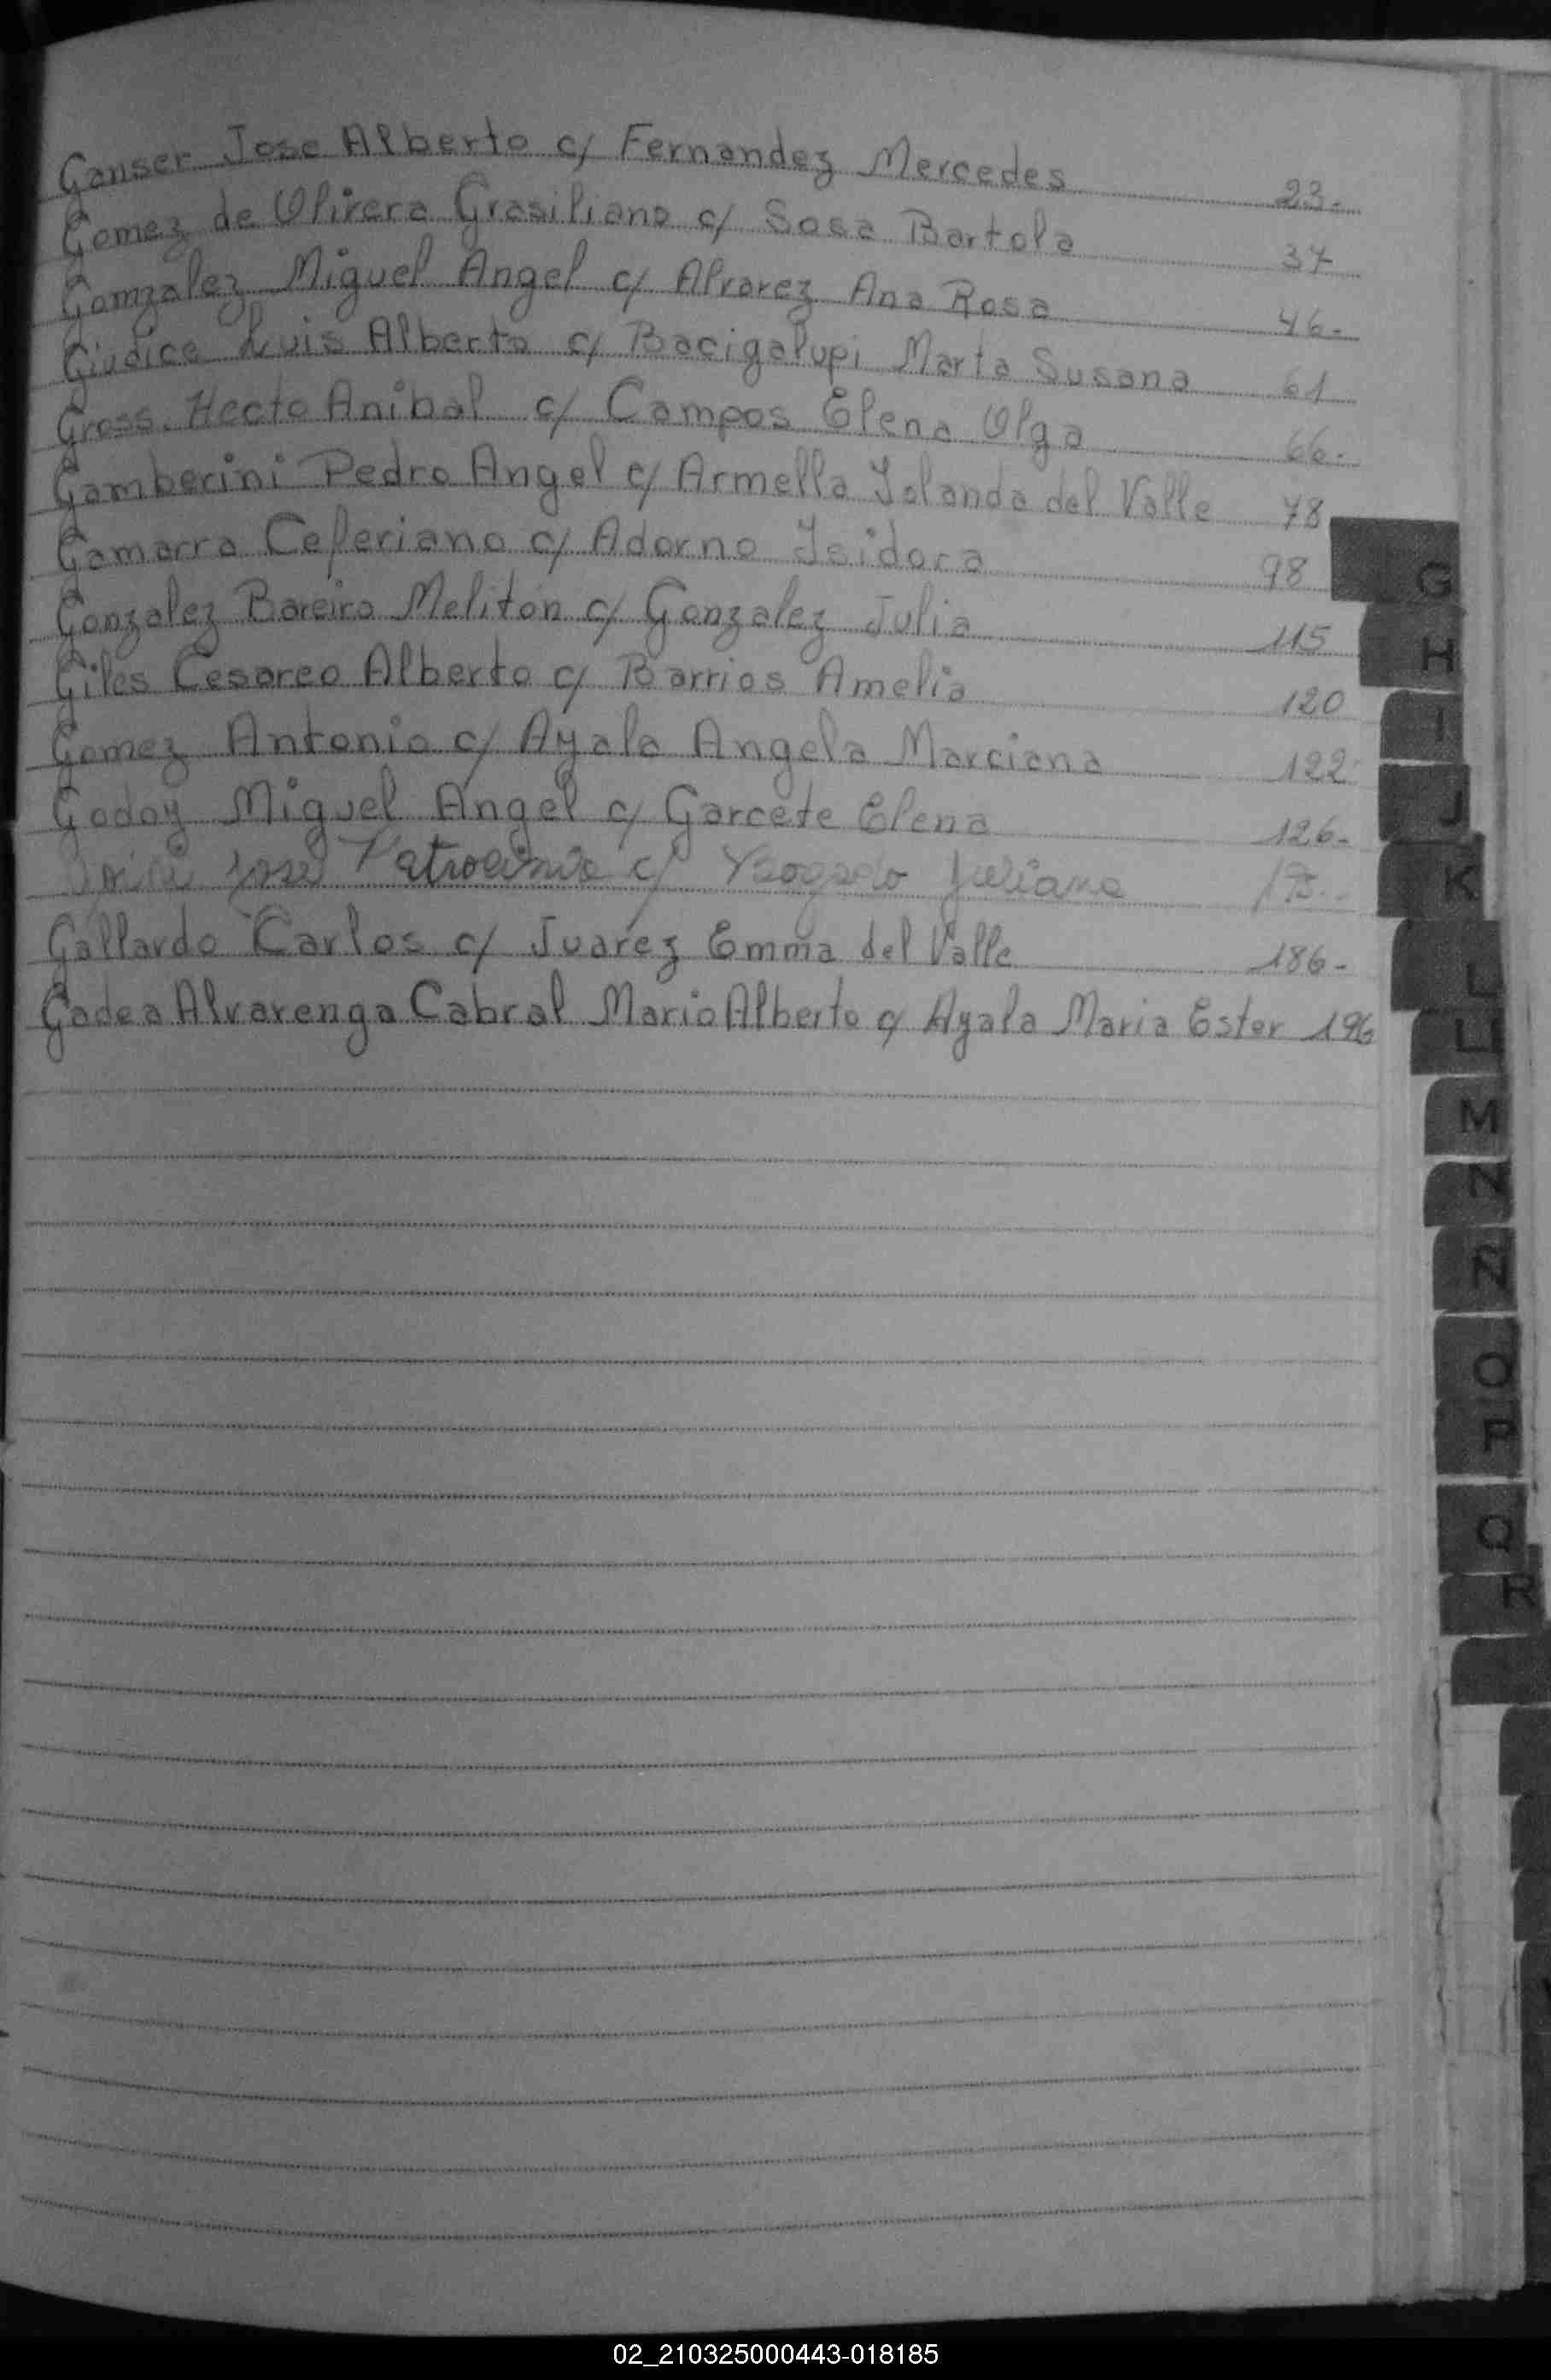 Ganser Jose Alberto c/ Fernandez Mercedes 23.-
Gomez de Olivera Grasiliano c/ Sosa Bartola 37
Gomzalez Miguel Angel c/ Alvarez Ana Rosa 46.-
Giudice Luis Alberto c/ Bacigalupi Marta Susana 61
Gross Hecto Anibal c/ Campos Elena Olga 66.-
Gamberini Pedro Angel c/ Armella Yolanda del Valle 78
Gamarra Ceferiano c/ Adorno Isidora 98
Gonzalez Bareiro Melitón c/ Gonzalez Julia 115
Giles Cesareo Alberto c/ Barrios Amelia 120
Gomez Antonio c/ Ayala Angela Marciana 122
Godoy Miguel Angel c/ Garcete Elena 126.-
Jose Patrocinio c/ Bogado Juliana
Gallardo Carlos c/ Juarez Emma del Valle 186.-
Gadea Alvarenga Cabral Mario Alberto c/ Ayala Maria Ester 196
G
H
I
J
K
L
LL
M
N
Ñ
O
P
Q
R
02_210325000443-018185